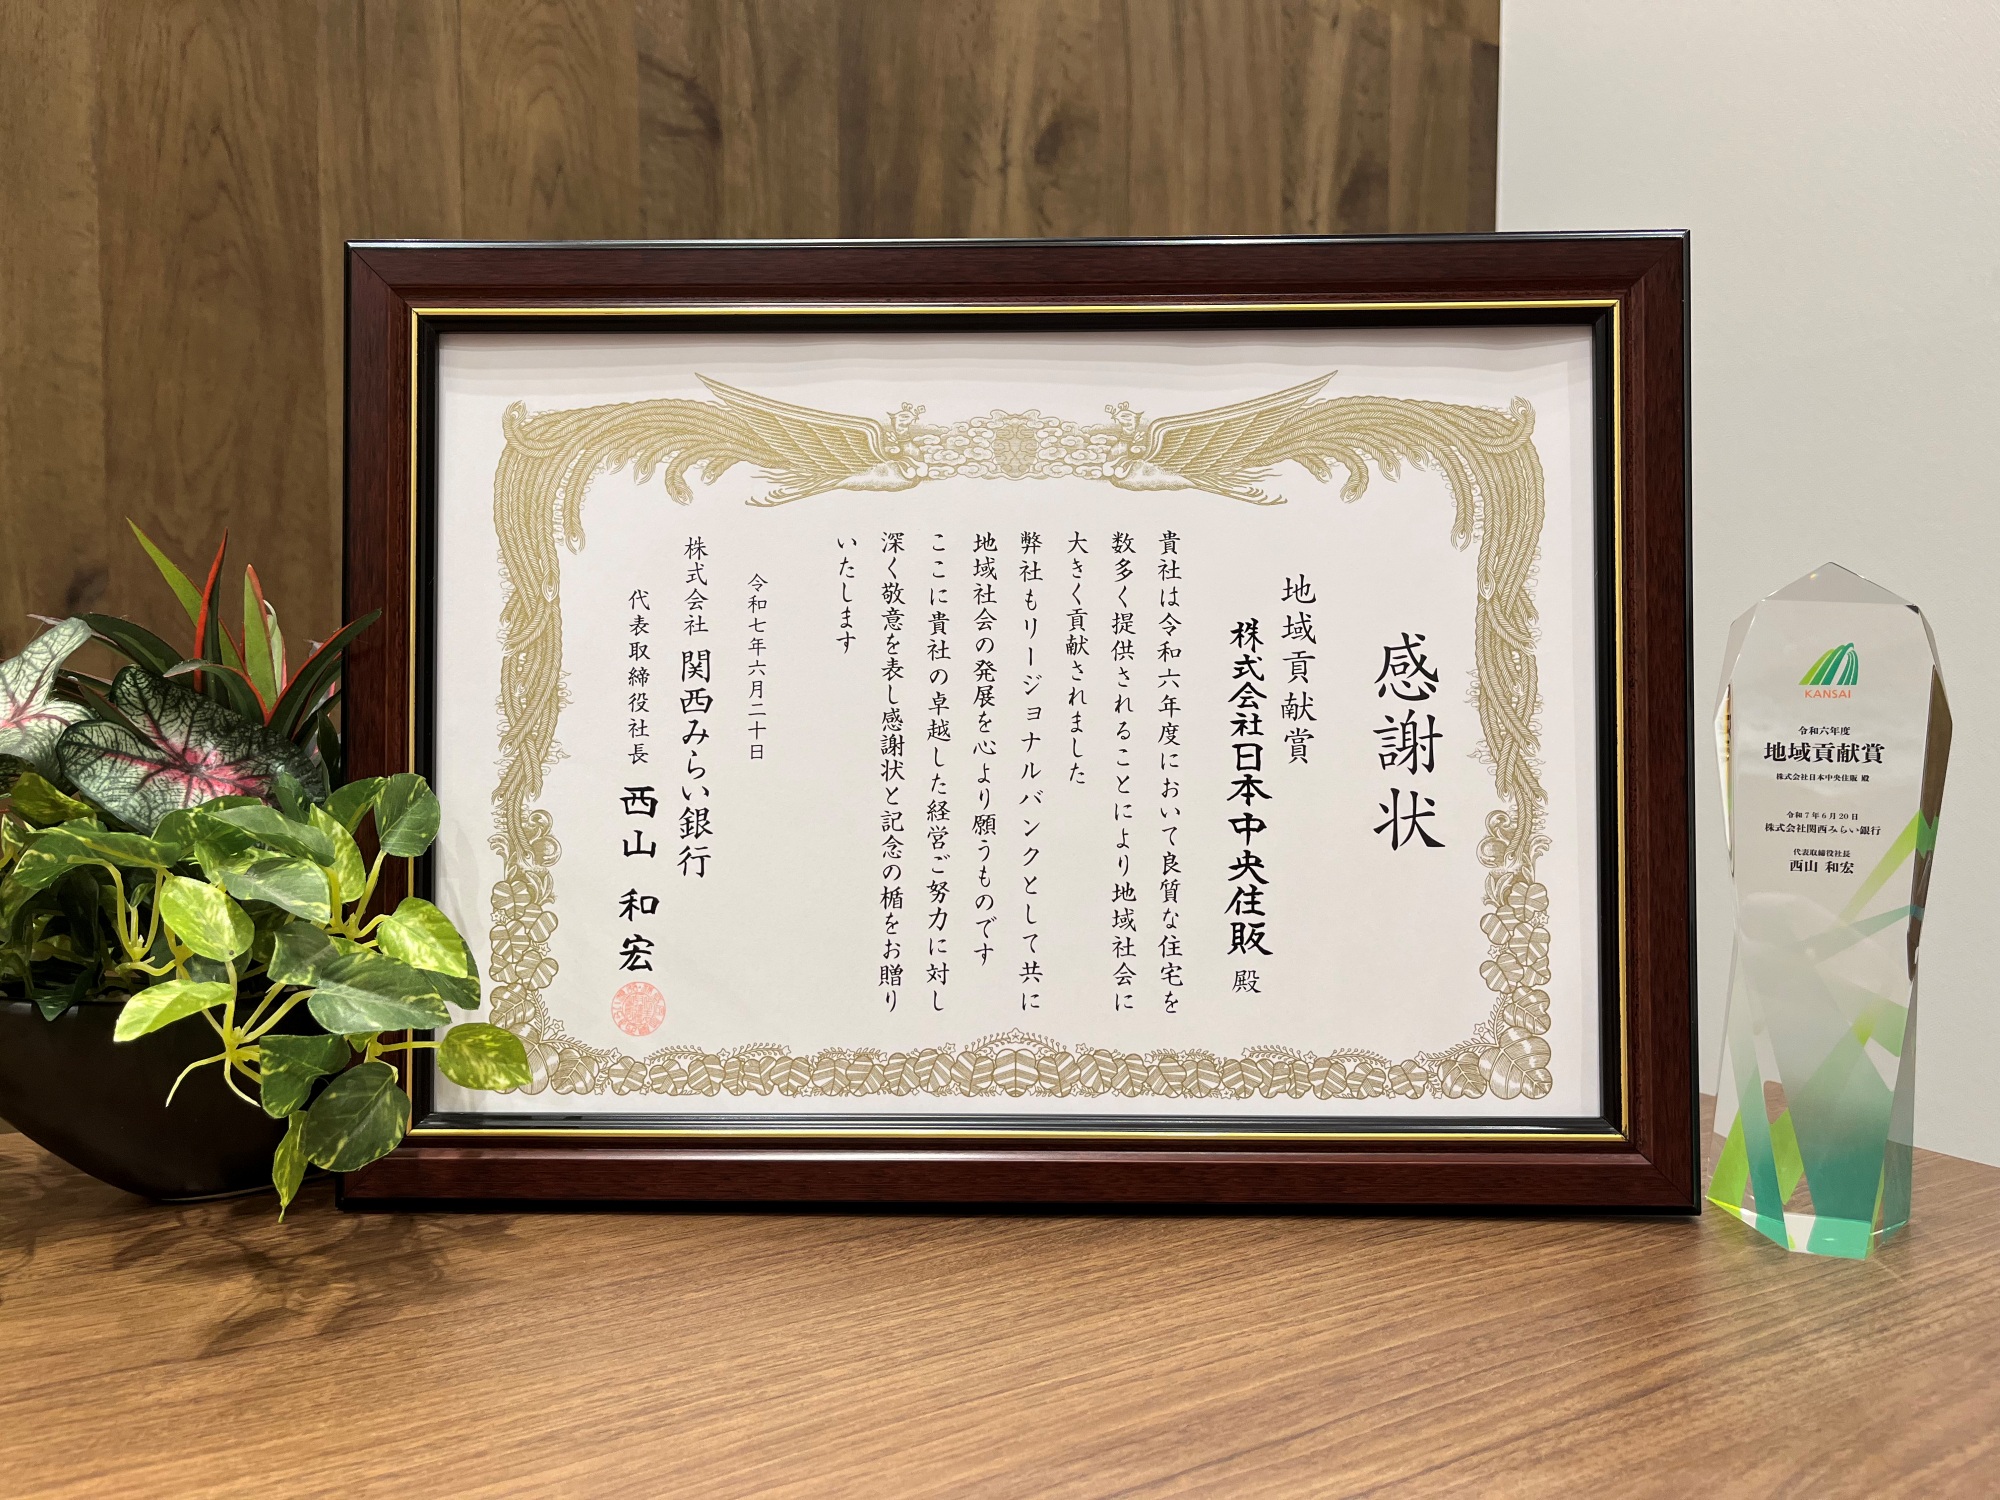 感謝状
地域貢献賞
株式会社日本中央住販 殿
貴社は令和六年度において良質な住宅を
数多く提供されることにより地域社会に
大きく貢献されました
弊社もリージョナルバンクとして共に
地域社会の発展を心より願うものです
ここに貴社の卓越した経営ご努力に対し
深く敬意を表し感謝状と記念の楯をお贈り
いたします
令和七年六月二十日
株式会社 関西みらい銀行
代表取締役社長 西山 和宏
KANSAI
令和六年度
地域貢献賞
株式会社日本中央住販 殿
令和7年6月20日
株式会社関西みらい銀行
代表取締役社長
西山 和宏